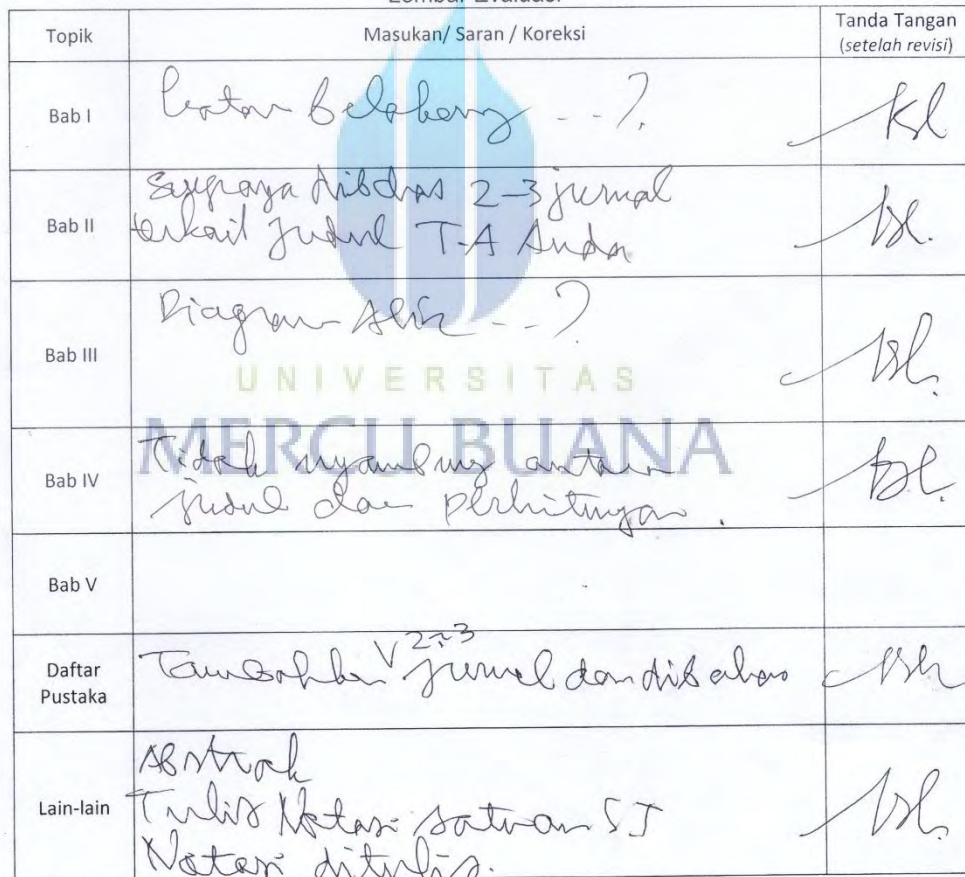 Lembar Evaluasi
Topik
Masukan/ Saran / Koreksi
Tanda Tangan
(setelah revisi)
Bab I
Latar Belakang - - ?
Bab II
Supaya dibahas 2-3 jurnal
terkait Judul T.A Anda
Bab III
Diagram Alir - - ?
UNIVERSITAS
MERCU BUANA
Bab IV
Tidak nyambung antara
judul dan perhitungan.
Bab V
Daftar
Pustaka
Tambahkan 2-3 jurnal dan dibahas
Lain-lain
Abstrak
Tulis Notasi satuan SI
Notasi ditulis.